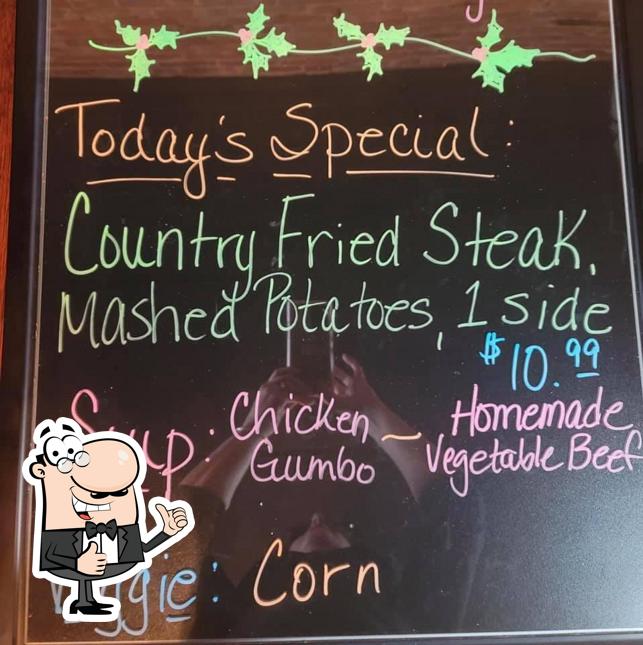 Today's Special:
Country Fried Steak,
Mashed Potatoes, 1 side
$10.99
Soup: Chicken Gumbo ~ Homemade Vegetable Beef
Veggie: Corn